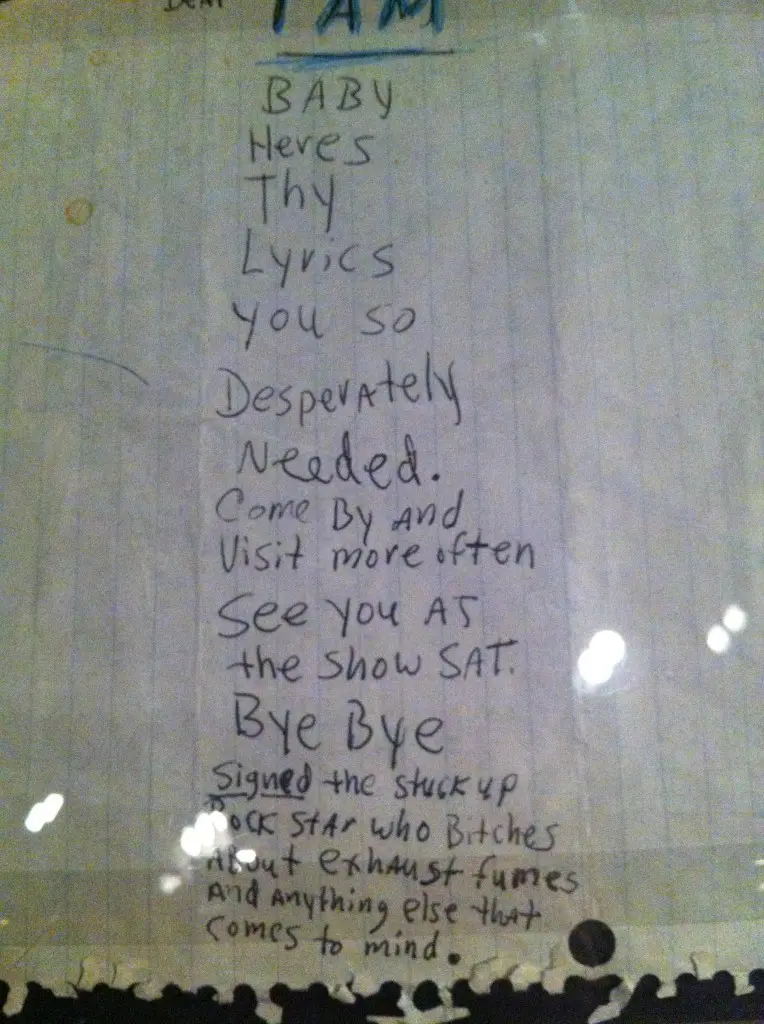 Dear I AM
BABY
Heres
Thy
Lyrics
you so
Desperately
Needed.
Come By And
Visit more often
See you AT
the show SAT.
Bye Bye
Signed the stuck up
Rock Star who Bitches
About exhaust fumes
And Anything else that
comes to mind.